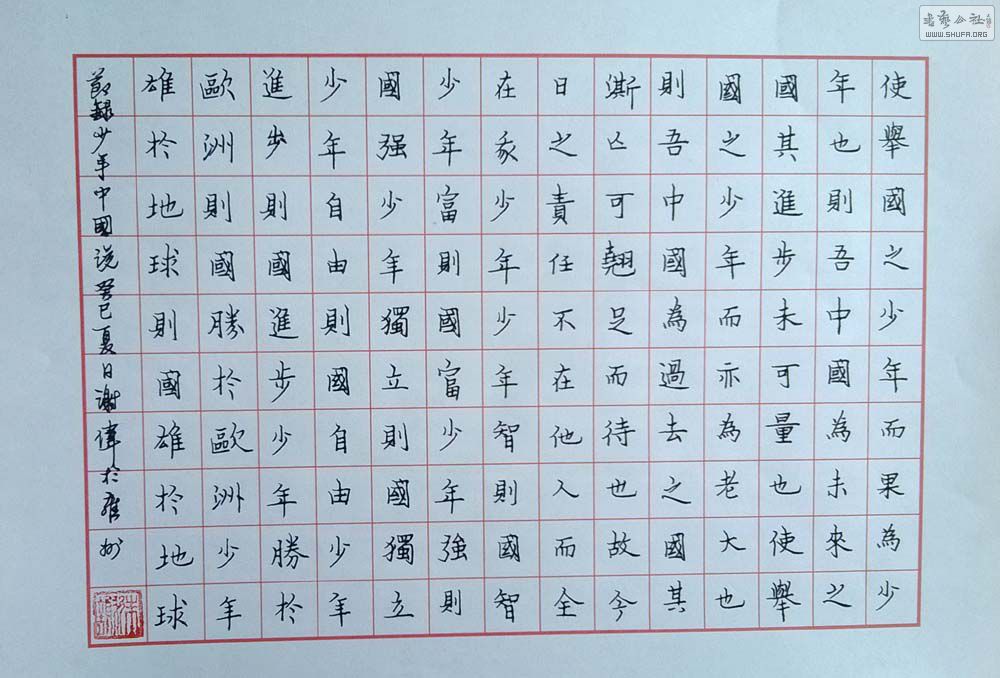 使舉國之少年而果為少
年也則吾中國為未來之
國其進步未可量也使舉
國之少年而亦為老大也
則吾中國為過去之國其
澌亡可翹足而待也故今
日之責任不在他人而全
在我少年少年智則國智
少年富則國富少年強則
國强少年獨立則國獨立
少年自由則國自由少年
進步則國進步少年勝於
歐洲則國勝於歐洲少年
雄於地球則國雄於地球
節録少年中國说癸巳夏日謝偉於雍州
書藝公社
WWW.SHUFA.ORG